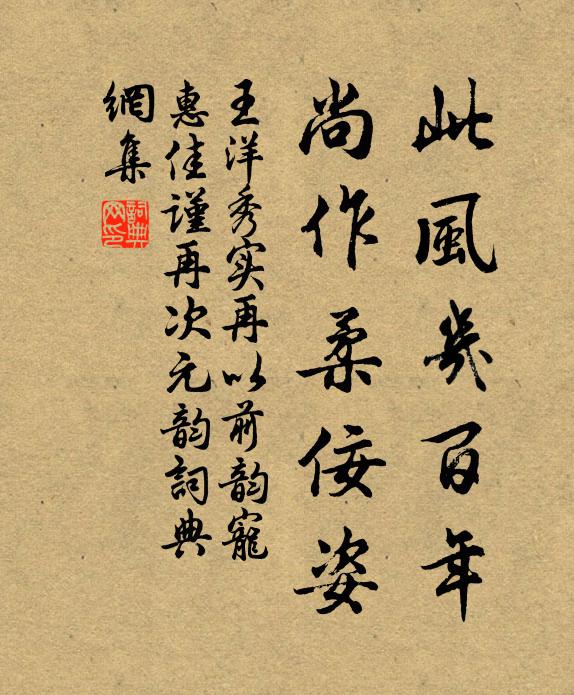 此風幾百年
尚作柔佞姿
王洋秀实再以前韵寵
惠佳謹再次元韵詞典
網集
詞典
网印